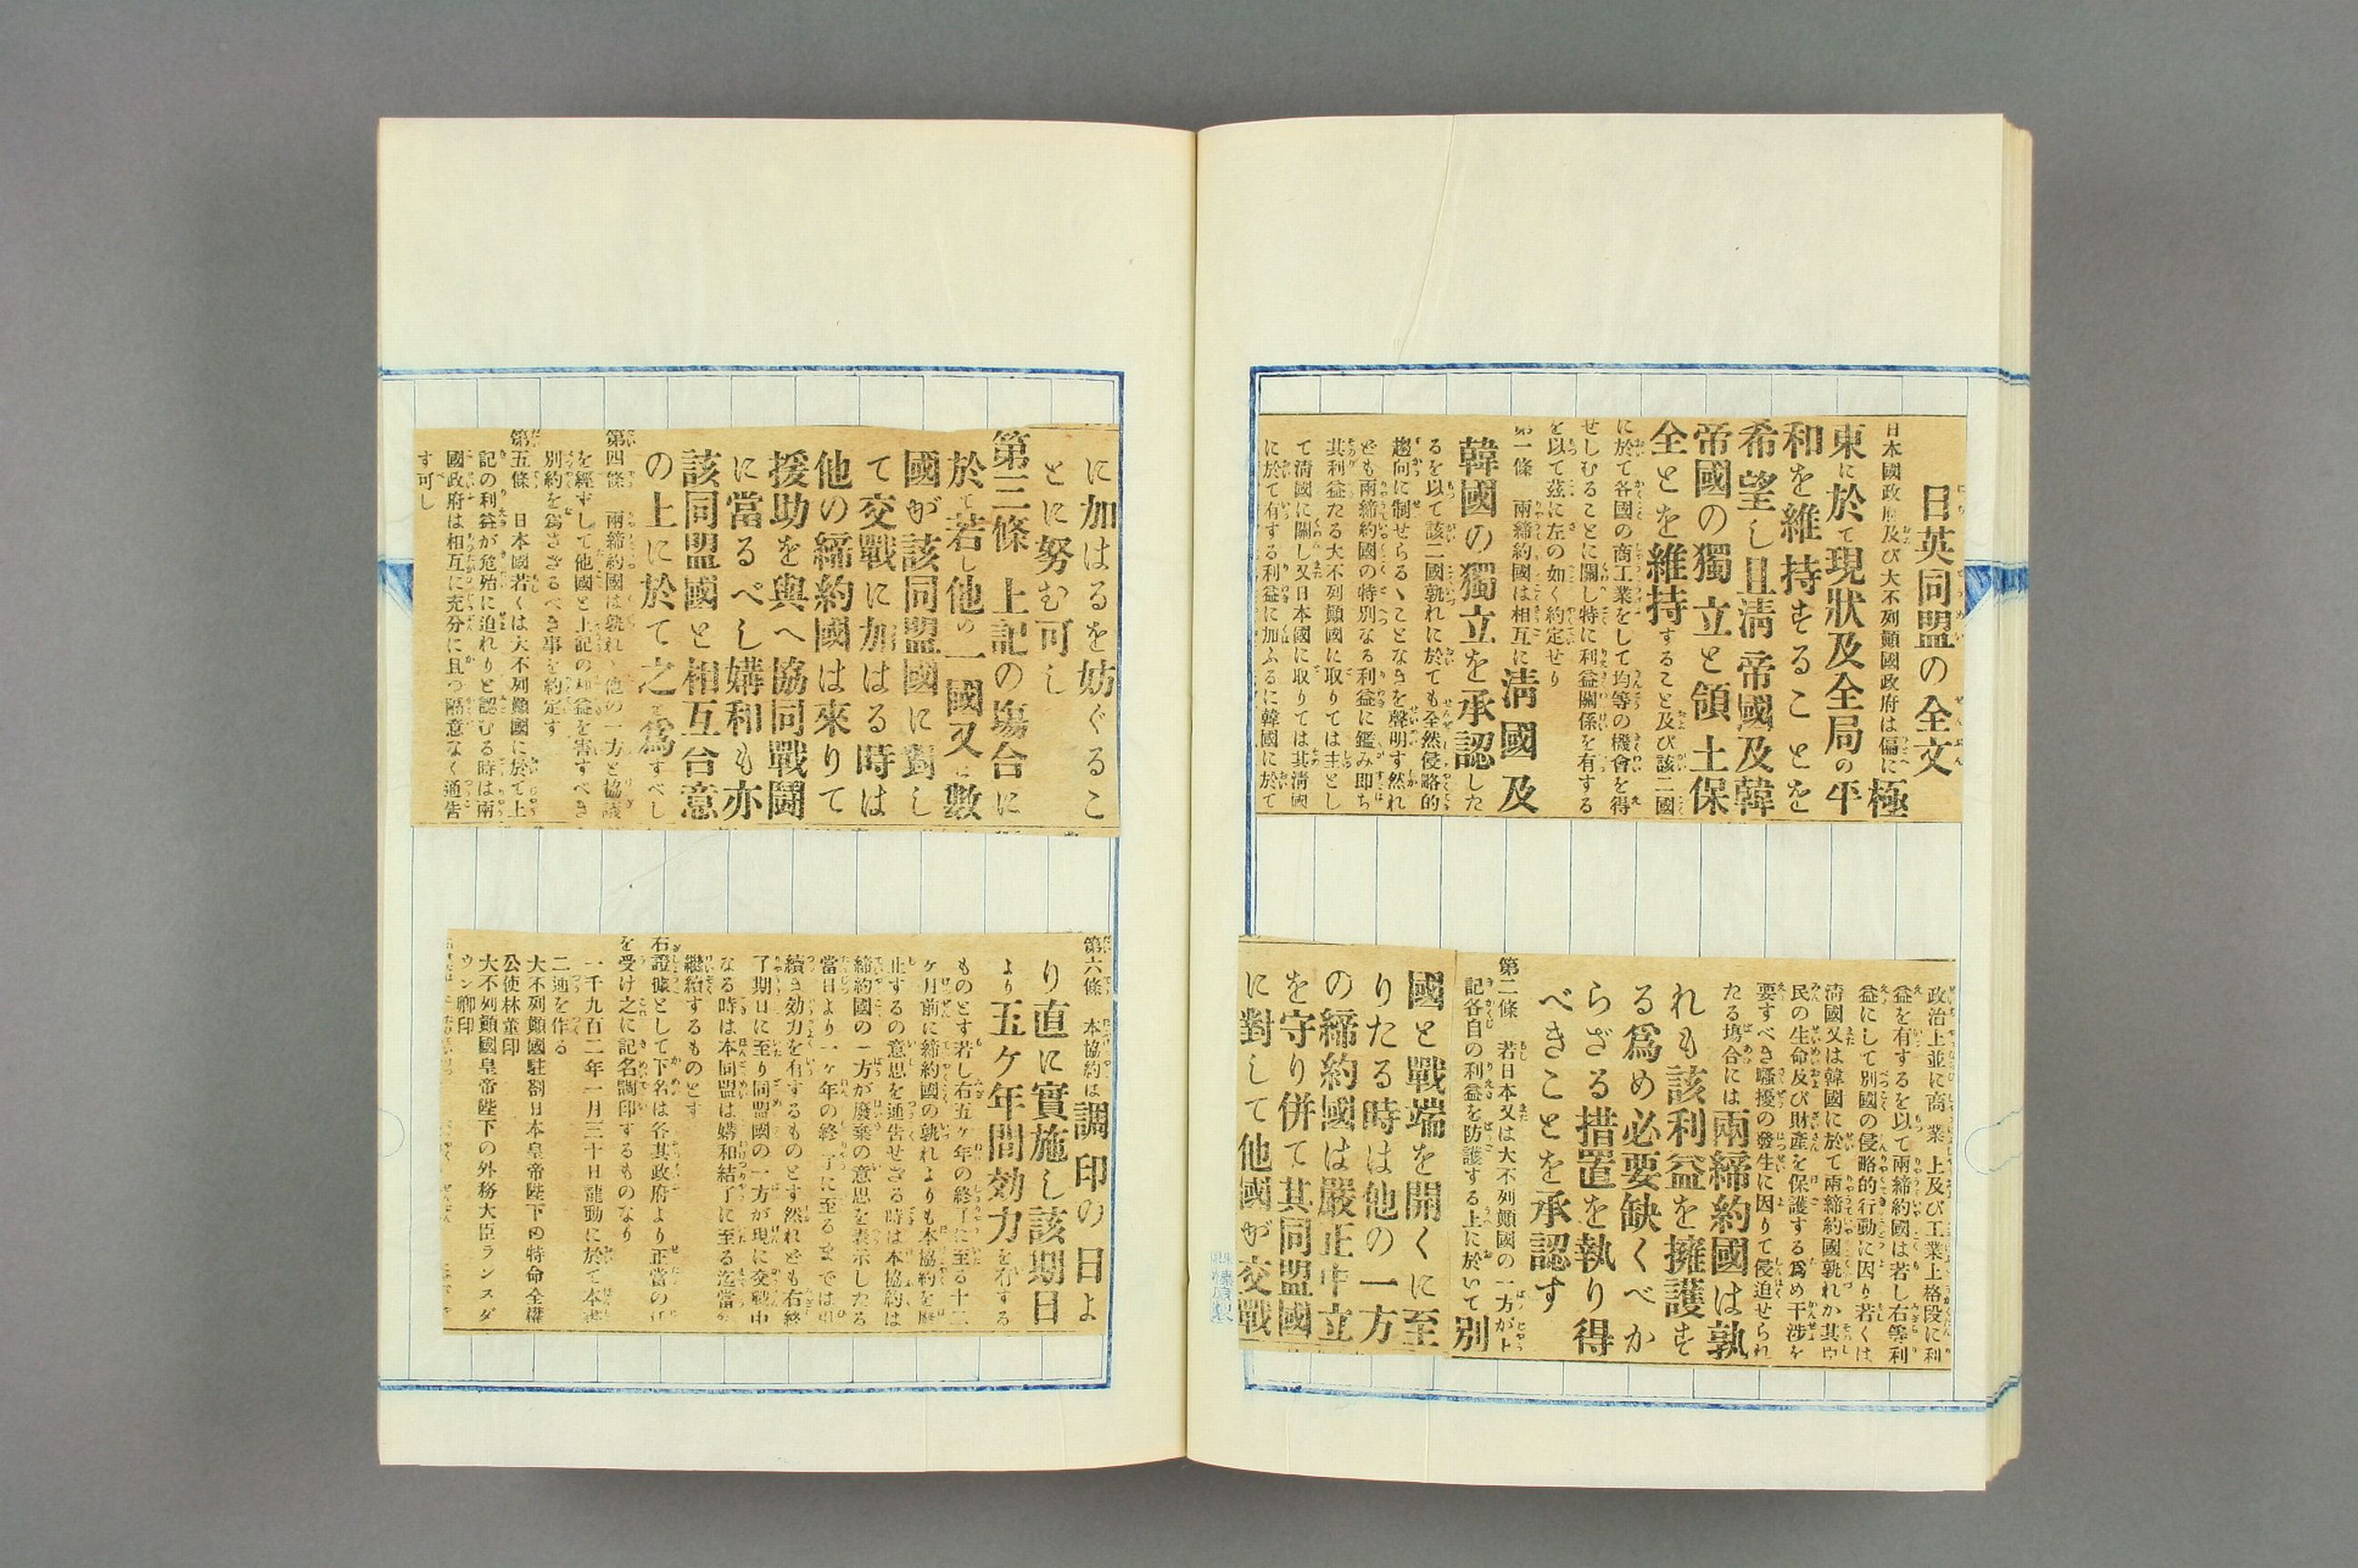 日英同盟の全文
日本國政府及び大不列顛國政府は偏に極
東に於て現狀及全局の平
和を維持することを
希望し且淸帝國及韓
帝國の獨立と領土保
全とを維持すること及び該二國
に於て各國の商工業をして均等の機會を得
せしむることに關し特に利益關係を有する
を以て茲に左の如く約定せり
第一條 兩締約國は相互に淸國及
韓國の獨立を承認した
るを以て該二國孰れに於ても全然侵略的
趨向に制せらるゝことなきを聲明す然れ
ども兩締約國の特別なる利益に鑑み即ち
其利益たる大不列顛國に取りては主とし
て淸國に關し又日本國に取りては其淸國
に於て有する利益に加ふるに韓國に於て
政治上並に商業上及び工業上格段に利
益を有するを以て兩締約國は若し右等利
益にして別國の侵略的行動に因り若くは
淸國又は韓國に於て兩締約國孰れか其臣
民の生命及び財產を保護する爲め干涉を
要すべき騷擾の發生に因りて侵迫せられ
たる塲合には兩締約國は孰
れも該利益を擁護す
る爲め必要缺くべか
らざる措置を執り得
べきことを承認す
第二條 若日本又は大不列顛國の一方が上
記各自の利益を防護する上に於いて別
國と戰端を開くに至
りたる時は他の一方
の締約國は嚴正中立
を守り併て其同盟國
に對して他國が交戰
に加はるを妨ぐるこ
とに努む可し
第三條 上記の塲合に
於て若し他の一國又は數
國が該同盟國に對し
て交戰に加はる時は
他の締約國は來りて
援助を與へ協同戰鬪
に當るべし媾和も亦
該同盟國と相互合意
の上に於て之を爲すべし
第四條 兩締約國は孰れも他の一方と協議
を經ずして他國と上記の利益を害すべき
別約を爲さざるべき事を約定す
第五條 日本國若くは大不列顛國に於て上
記の利益が危殆に迫れりと認むる時は兩
國政府は相互に充分に且つ隔意なく通告
す可し
第六條 本協約は調印の日よ
り直に實施し該期日
より五ケ年間効力を有する
ものとす若し右五ケ年の終了に至る十二
ケ月前に締約國の孰れよりも本協約を廢
止するの意思を通告せざる時は本協約は
締約國の一方が廢棄の意思を表示したる
當日より一ケ年の終了に至るまでは引
續き効力を有するものとす然れども右終
了期日に至り同盟國の一方が現に交戰中
なる時は本同盟は媾和結了に至る迄當然
繼續するものとす
右證據として下名は各其政府より正當の委任
を受け之に記名調印するものなり
一千九百二年一月三十日龍動に於て本書
二通を作る
大不列顛國駐剳日本皇帝陛下の特命全權
公使林董印
大不列顛國皇帝陛下の外務大臣ランスダ
ウン卿印